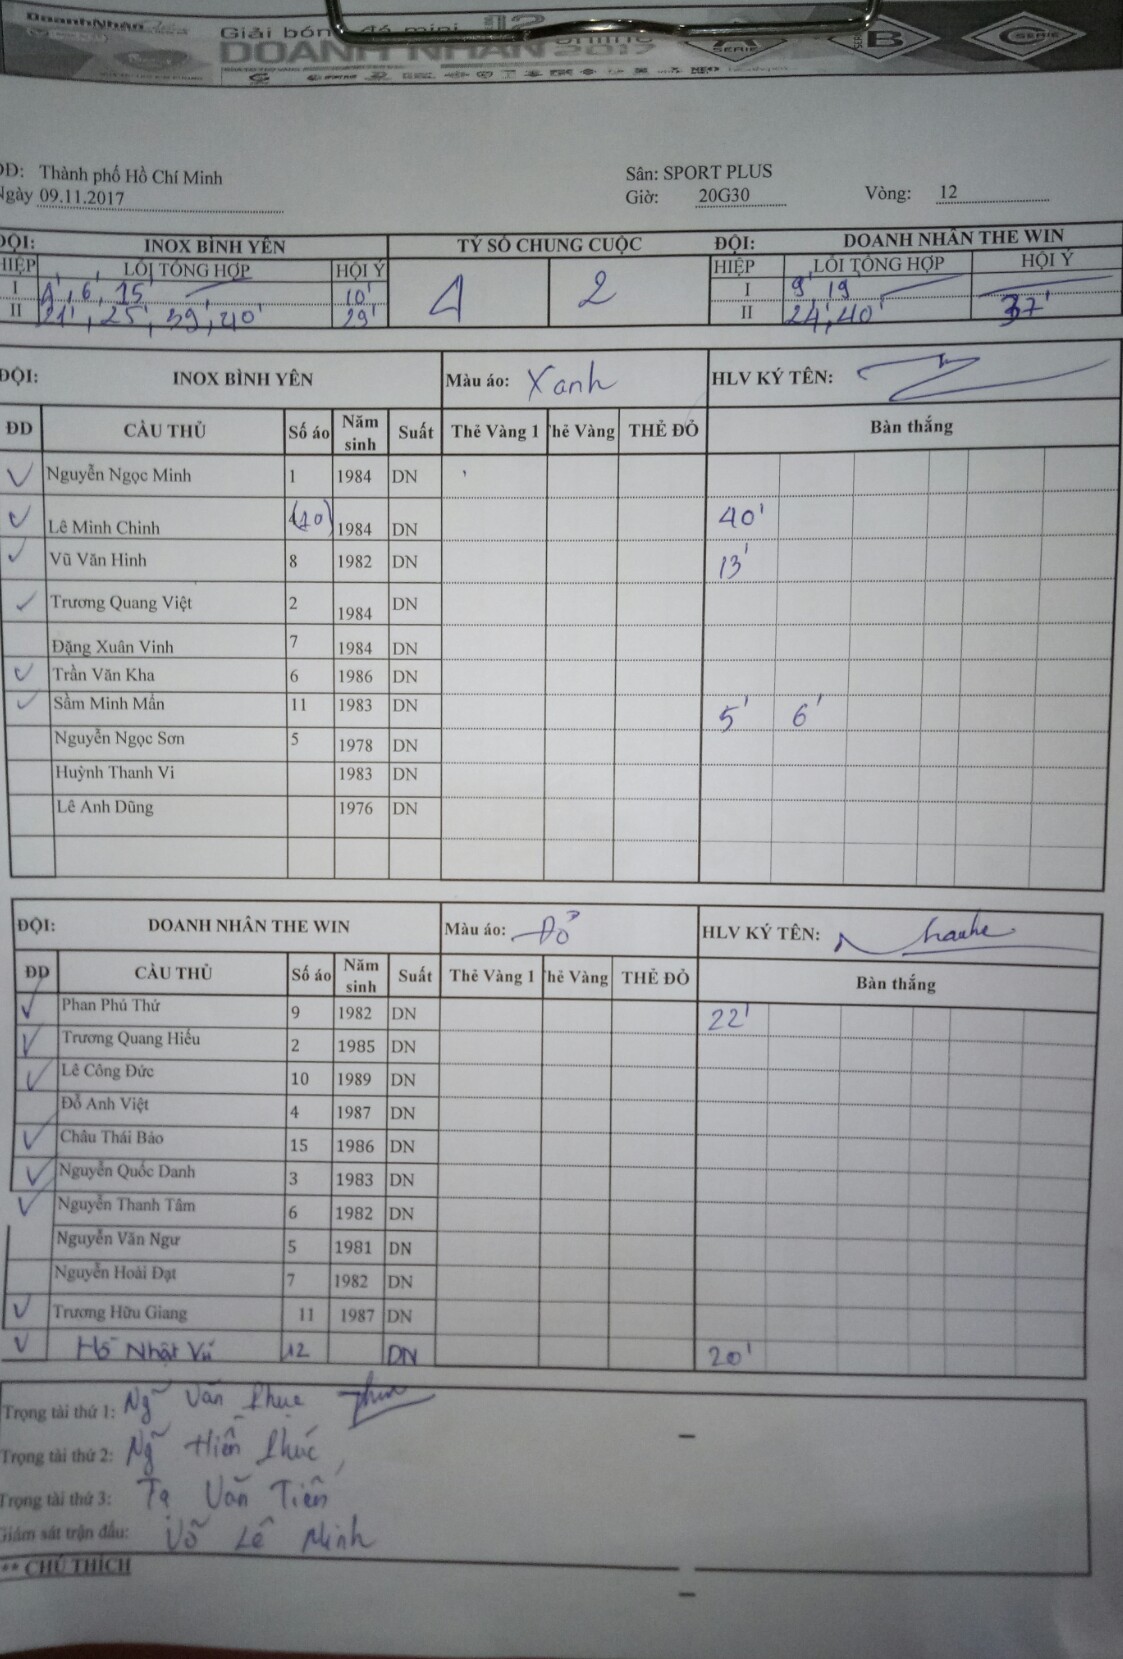 DoanhNhân
Giải bóng đá mini 12
DOANH NHÂN 2017
A SERIE B SERIE C SERIE
ĐĐ: Thành phố Hồ Chí Minh Sân: SPORT PLUS
Ngày 09.11.2017 Giờ: 20G30 Vòng: 12
ĐỘI: INOX BÌNH YÊN TỶ SỐ CHUNG CUỘC ĐỘI: DOANH NHÂN THE WIN
HIỆP LỖI TỔNG HỢP HỘI Ý HIỆP LỖI TỔNG HỢP HỘI Ý
I 4', 6', 15' 10' 4 2 I 9' 19'
II 21', 25', 39', 40' 29' II 24', 40' 37'
ĐỘI: INOX BÌNH YÊN Màu áo: Xanh HLV KÝ TÊN:
ĐD CẦU THỦ Số áo Năm sinh Suất Thẻ Vàng 1 Thẻ Vàng THẺ ĐỎ Bàn thắng
Nguyễn Ngọc Minh 1 1984 DN
Lê Minh Chinh (10) 1984 DN 40'
Vũ Văn Hinh 8 1982 DN 13'
Trương Quang Việt 2 1984 DN
Đặng Xuân Vinh 7 1984 DN
Trần Văn Kha 6 1986 DN
Sầm Minh Mẩn 11 1983 DN 5' 6'
Nguyễn Ngọc Sơn 5 1978 DN
Huỳnh Thanh Vi 1983 DN
Lê Anh Dũng 1976 DN
ĐỘI: DOANH NHÂN THE WIN Màu áo: Đỏ HLV KÝ TÊN:
ĐD CẦU THỦ Số áo Năm sinh Suất Thẻ Vàng 1 Thẻ Vàng THẺ ĐỎ Bàn thắng
Phan Phú Thứ 9 1982 DN 22'
Trương Quang Hiếu 2 1985 DN
Lê Công Đức 10 1989 DN
Đỗ Anh Việt 4 1987 DN
Châu Thái Bảo 15 1986 DN
Nguyễn Quốc Danh 3 1983 DN
Nguyễn Thanh Tâm 6 1982 DN
Nguyễn Văn Ngư 5 1981 DN
Nguyễn Hoài Đạt 7 1982 DN
Trương Hữu Giang 11 1987 DN
Hồ Nhật Vũ 12 DN 20'
Trọng tài thứ 1: Ng̃ Văn Phục
Trọng tài thứ 2: Ng̃ Hiền Phúc
Trọng tài thứ 3: Tạ Văn Tiến
Giám sát trận đấu: Võ Lê Minh
** CHÚ THÍCH